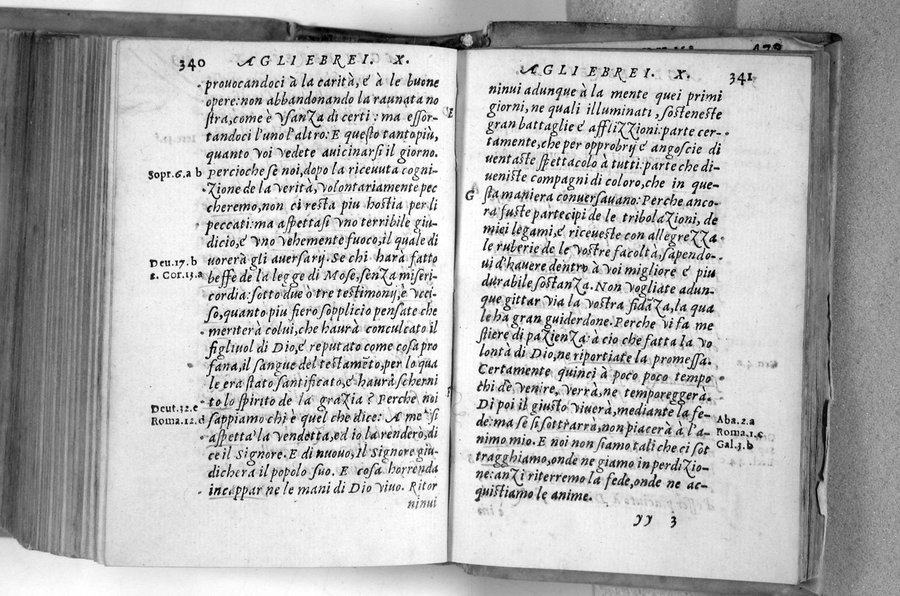 340 A GLI EBREI. X.
prouocandoci à la carità, e à le buone
opere: non abbandonando la raunata no
stra, come è vsanza di certi: ma essor-
tandoci l'uno l'altro: E questo tanto più,
quanto voi vedete auicinarsi il giorno.
Sopt.6.a b
percioche se noi, dopo la riceuuta cogni-
zione de la verità, volontariamente pec
cheremo, non ci resta piu hostia per li
peccati: ma aspettasi vno terribile giu-
dicio, e vno vehemente fuoco, il quale di
uorerà gli auersary. Se chi harà fatto
Deu.17.b
2. Cor.13.a
beffe de la legge di Mose, senza miseri-
cordia: sotto due ò tre testimony, è vcci-
so, quanto piu fiero sopplicio pensate che
meriterà colui, che haurà conculcato il
figliuol di Dio, e reputato come cosa pro
fana, il sangue del testamẽto, per lo qua
le era stato santificato, e haurà scherni
to lo spirito de la grazia? Perche noi
Deut.32.e
Roma.12.d
sappiamo chi è quel che dice: A me si
aspetta la vendetta, ed io la renderò, di
ce il Signore. E di nuouo, Il Signore giu-
dicherà il popolo suo. E cosa horrenda
incappar ne le mani di Dio viuo. Ritor
ninui
A GLI EBREI. X. 341
ninui adunque à la mente quei primi
giorni, ne quali illuminati, sosteneste
gran battaglie e afflizzioni: parte cer-
tamente, che per opprobry e angoscie di
uentaste spettacolo à tutti: parte che di-
ueniste compagni di coloro, che in que-
G
sta maniera conuersauano: Perche anco-
ra fuste partecipi de le tribolazioni, de
miei legami, e riceueste con allegrezza
le ruberie de le vostre facoltà, sapendo-
ui d'hauere dentro à voi migliore e piu
durabile sostanza. Non vogliate adun-
que gittar via la vostra fidãza, la qua
le ha gran guiderdone. Perche vi fa me
stiere di pazienza: a cio che fatta la vo
lontà di Dio, ne riportiate la promessa.
Certamente quinci à poco poco tempo
chi dè venire, verrà, ne temporeggerà.
Di poi il giusto viuerà, mediante la fe-
Aba.2.a
Roma.1.c
Gal.3.b
de: ma se si sottrarrà, non piacerà à l'a-
nimo mio. E noi non siamo tali che ci sot
tragghiamo, onde ne giamo in perdizio-
ne: anzi riterremo la fede, onde ne ac-
quistiamo le anime.
yy 3